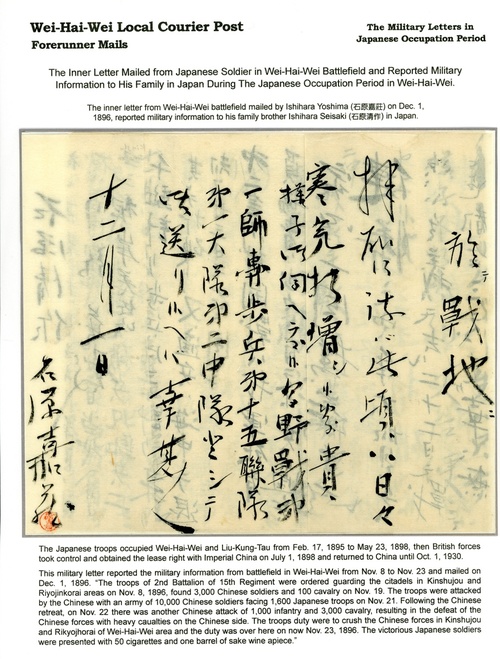 Wei-Hai-Wei Local Courier Post
Forerunner Mails
The Military Letters in
Japanese Occupation Period
The Inner Letter Mailed from Japanese Soldier in Wei-Hai-Wei Battlefield and Reported Military
Information to His Family in Japan During The Japanese Occupation Period in Wei-Hai-Wei.
The inner letter from Wei-Hai-Wei battlefield mailed by Ishihara Yoshima (石原嘉莊) on Dec. 1,
1896, reported military information to his family brother Ishihara Seisaki (石原清作) in Japan.
於テ戰地ニ
拝 此頃ハ日々
寒気 増シ 貴
様子 野戰
一師 歩兵第十五聯隊
第一大隊第二中隊 シテ
送り 幸甚
十二月一日
石原嘉
The Japanese troops occupied Wei-Hai-Wei and Liu-Kung-Tau from Feb. 17, 1895 to May 23, 1898, then British forces
took control and obtained the lease right with Imperial China on July 1, 1898 and returned to China until Oct. 1, 1930.
This military letter reported the military information from battlefield in Wei-Hai-Wei from Nov. 8 to Nov. 23 and mailed on
Dec. 1, 1896. "The troops of 2nd Battalion of 15th Regiment were ordered guarding the citadels in Kinshujou and
Riyojinkorai areas on Nov. 8, 1896, found 3,000 Chinese soldiers and 100 cavalry on Nov. 19. The troops were attacked
by the Chinese with an army of 10,000 Chinese soldiers facing 1,600 Japanese troops on Nov. 21. Following the Chinese
retreat, on Nov. 22 there was another Chinese attack of 1,000 infantry and 3,000 cavalry, resulting in the defeat of the
Chinese forces with heavy casualties on the Chinese side. The troops duty were to crush the Chinese forces in Kinshujou
and Rikyojhorai of Wei-Hai-Wei area and the duty was over here on now Nov. 23, 1896. The victorious Japanese soldiers
were presented with 50 cigarettes and one barrel of sake wine apiece."